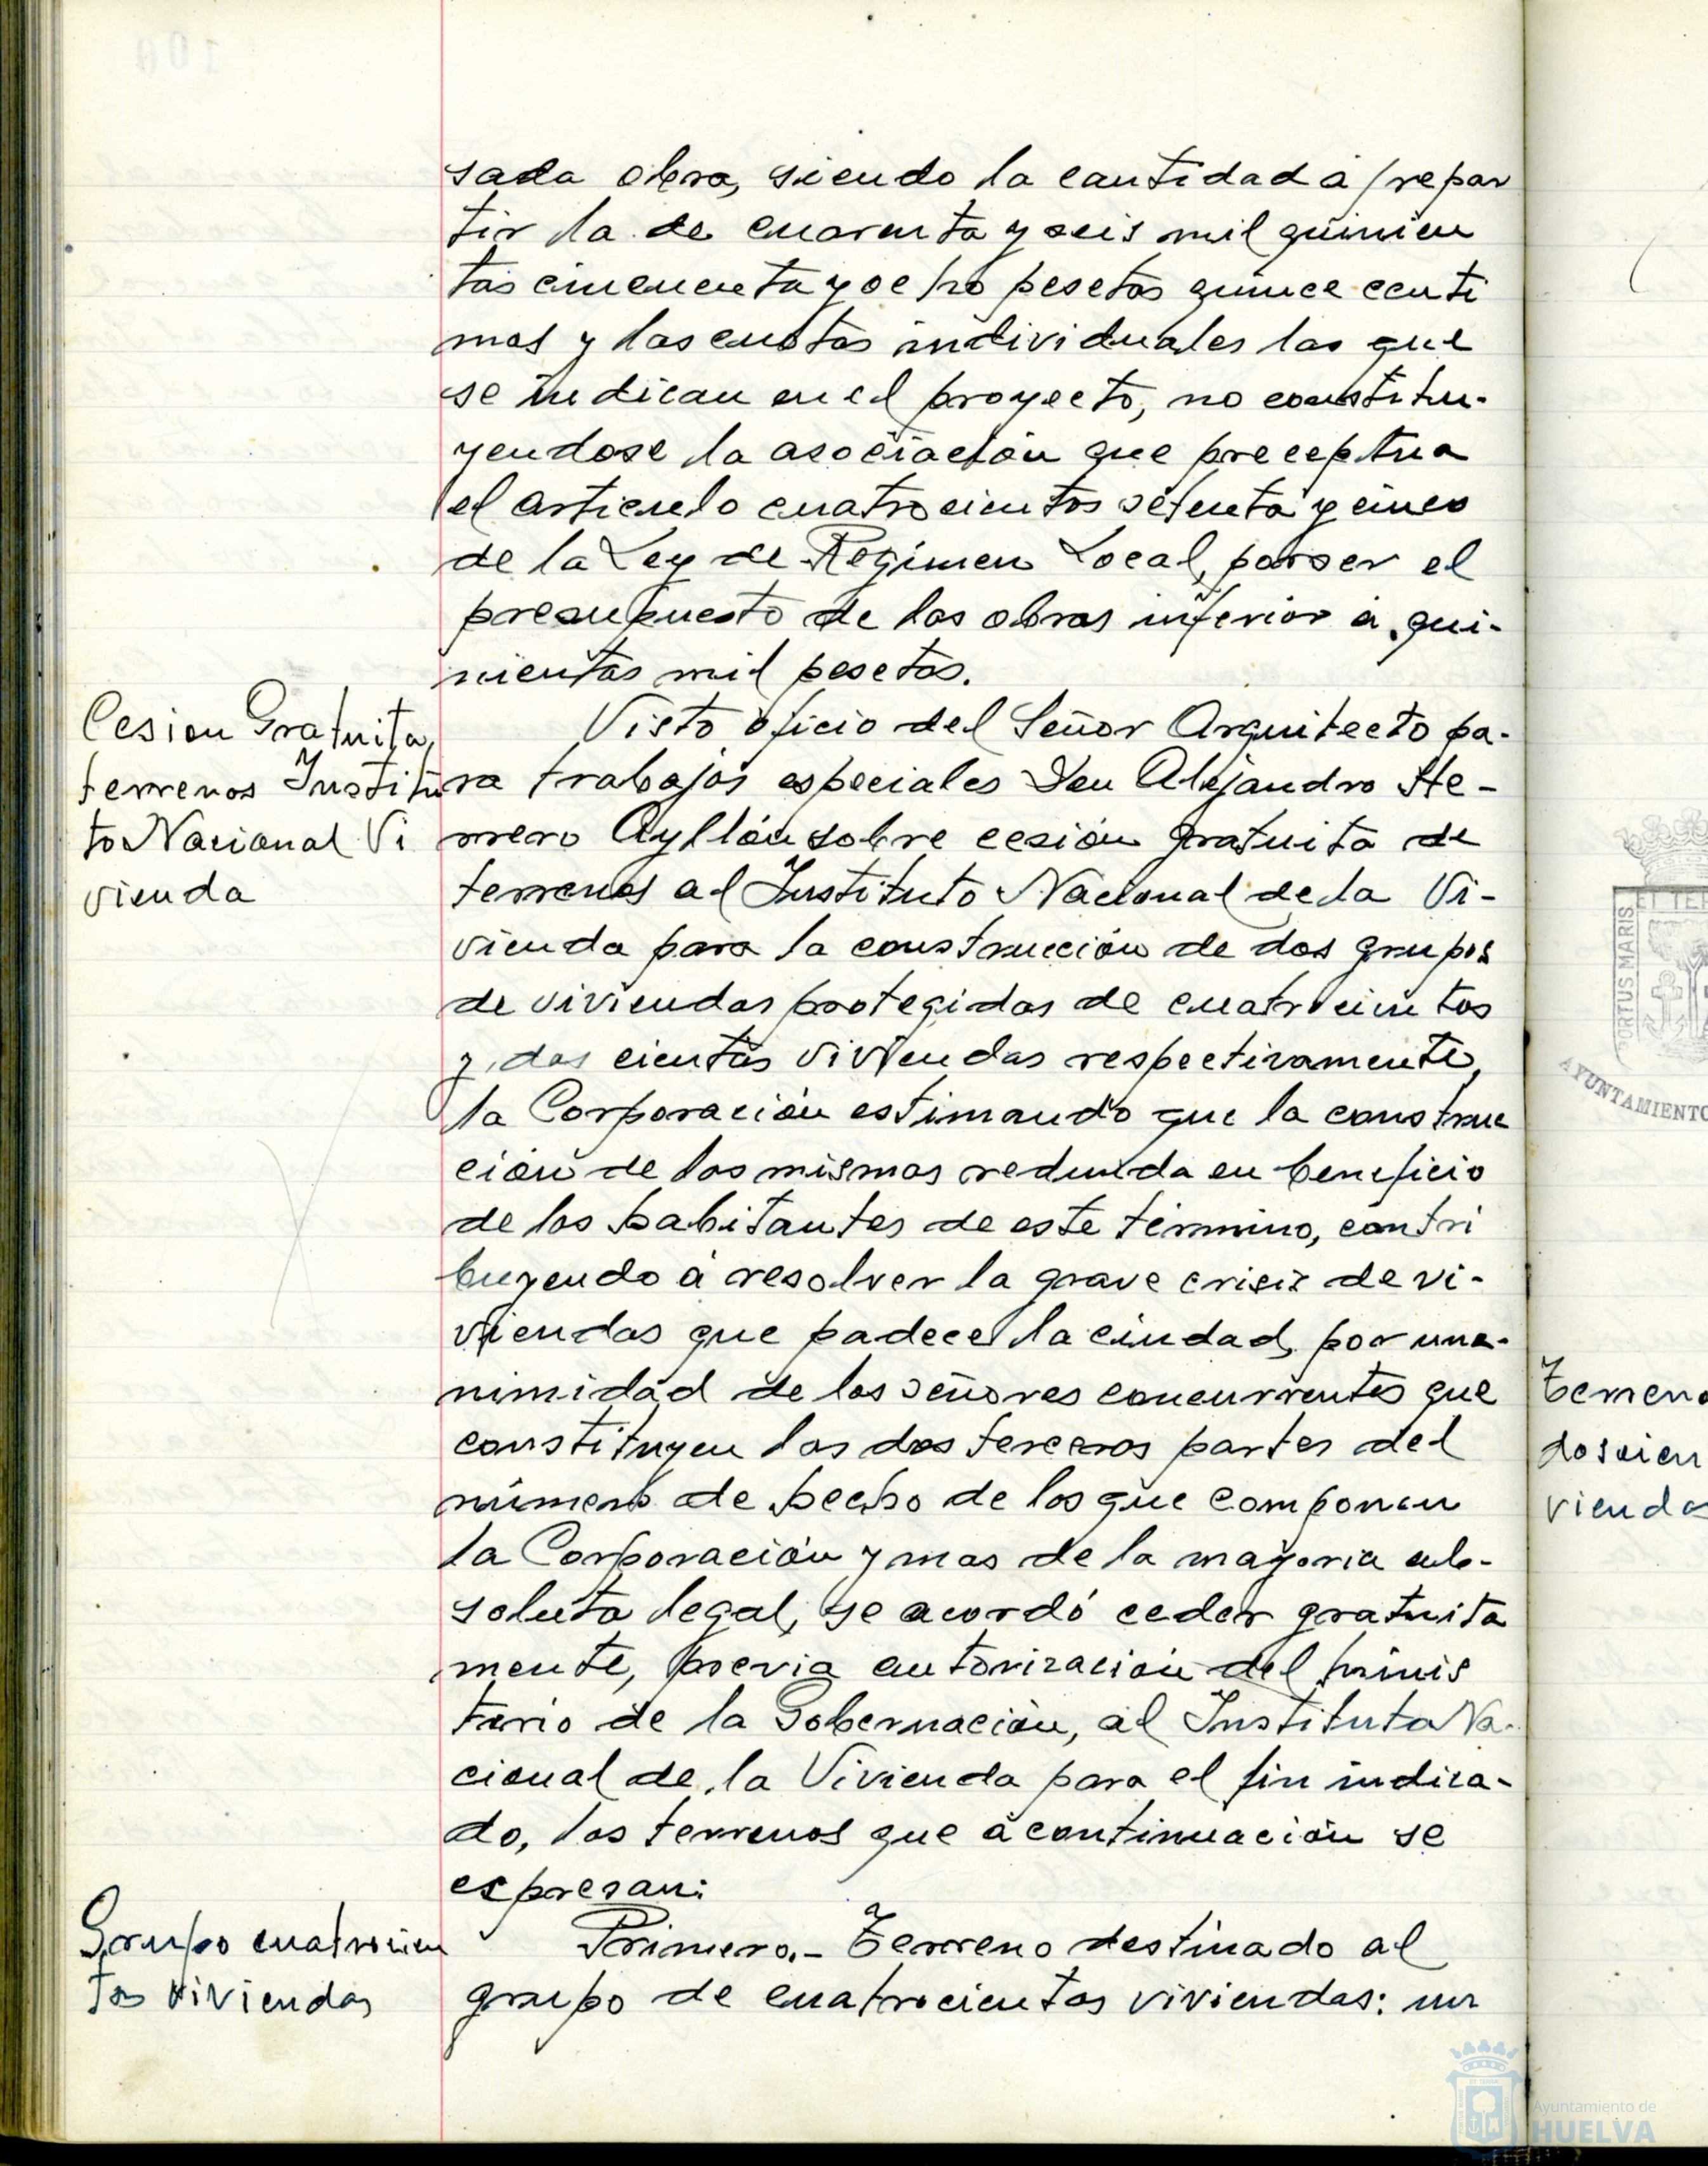 sada obra, siendo la cantidad á repar
tir la de cuarenta y seis mil quinien
tas cincuenta y ocho pesetas quince centi
mos y las cuotas individuales las que
se indican en el proyecto, no constitu-
yendose la asociación que preceptua
el articulo cuatrocientos setenta y cinco
de la Ley de Regimen Local, por ser el
presupuesto de las obras inferior a qui-
nientas mil pesetas.
Cesion Gratuita
terrenos Institu
to Nacional Vi
vienda
Visto oficio del Señor Arquitecto pa-
ra trabajos especiales Don Alejandro He-
rrero Ayllón sobre cesión gratuita de
terrenos al Instituto Nacional de la Vi-
vienda para la construcción de dos grupos
de viviendas protegidas de cuatrocientos
y dos cientas viviendas respectivamente,
la Corporación estimando que la construc
ción de los mismos redunda en beneficio
de los habitantes de este término, contri
buyendo a resolver la grave crisis de vi-
viendas que padece la ciudad, por una-
nimidad de los señores concurrentes que
constituyen las dos terceras partes del
número de hecho de los que componen
la Corporación y mas de la mayoria ab-
soluta legal, se acordó ceder gratuita
mente, previa autorización del Minis
terio de la Gobernación, al Instituto Na-
cional de la Vivienda para el fin indica-
do, los terrenos que á continuación se
expresan:
Grupo cuatrocien
tas viviendas
Primero.- Terreno destinado al
grupo de cuatrocientas viviendas: un
Terreno
doscien
viendas
PORTUS MARIS
ET TER
AYUNTAMIENTO
Ayuntamiento de
HUELVA